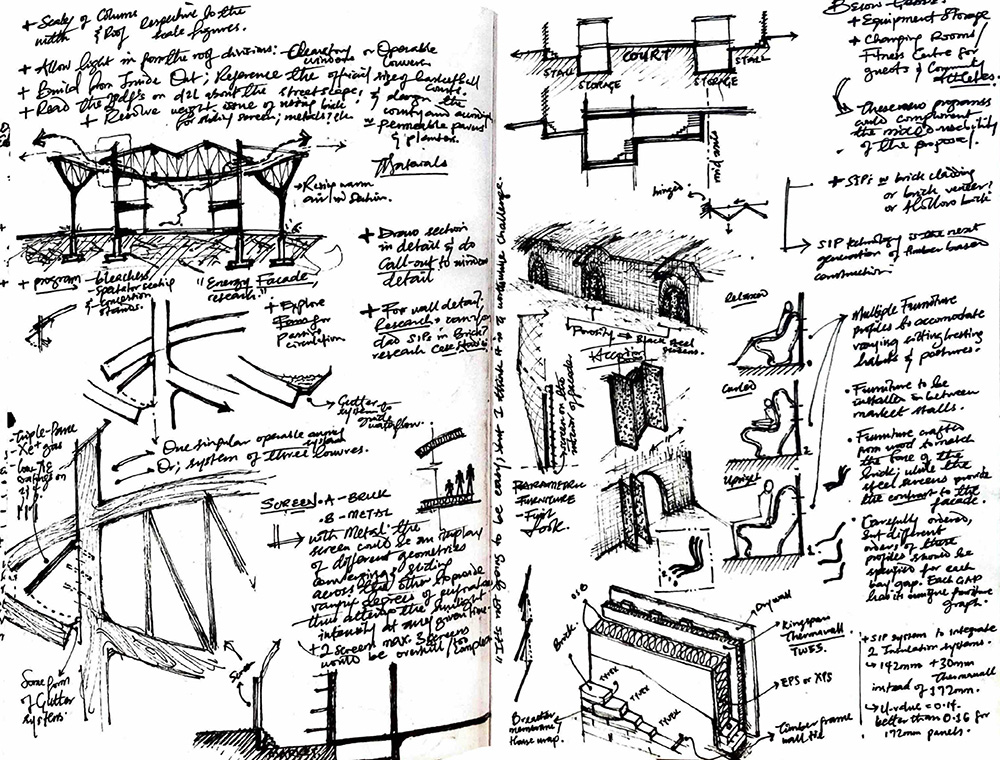 + Scale of Column respective to the
width & Roof scale figures.
+ Allow light in from the roof divisions: Clearstory or Operable
windows Louvers
+ Build from Inside Out; Reference the official size of basketball
courts.
+ Read the pdf's on d2l about the streetscape; & design the
+ Resolve
Materials
+ Rising warm
air in section.
+ program - bleachers
- Spectator seating
& concession
stands.
"Energy Facade,
research."
+ Explore
Form for
Passive
circulation
+ Draw section
in detail & do
Call-out to window
detail
+ For wall detail,
Research
SIPs in Brick?
research case studies
Gutter
system to
guide
waterflow.
One singular operable
system
Or; system of three louvres.
- Triple-Pane
Xe + gas
low "E"
coatings on
SCREEN: A - BRICK
B - METAL
with Metal: the
screen could be an interplay
of different geometries
converging & sliding
across each other to provide
varying degrees of
thus determine the sunlight
intensity at any given time.
+ 2 screens max. 3 screens
would be overkill / too complex
Some form
of Gutter
systems
Screen
"It's not going to be easy, but I think it's a worthwhile challenge."
STALL
COURT
STALL
STORAGE
STORAGE
mid axis
hinged
Below Grade:
+ Equipment Storage
+ Changing Rooms/
Fitness Centre for
guests & Community
Athletes.
These new programs
component
the mixed-use
of the proposal.
+ SIPs w brick cladding
or brick veneer?
or Hollow brick
SIP technology is the next
generation of timber based
construction
Porosity
Black Steel
Screens.
screen on the
interior of facade
PARAMETRIC
FURNITURE
- First
look.
Relaxed
Curled
Upright
Multiple Furniture
profiles to accomodate
varying sitting/resting
habits & postures.
• Furniture to be
installed in between
market stalls.
• Furniture crafted
from wood to match
the tone of the
brick; while the
steel screens provide
the contrast to the
facade.
• Carefully ordered,
but different
orders of these
profiles should be
specified for each
bay gap. Each GAP
has its unique furniture
graph.
OSB
Brick
Dry wall
Kingspan
Thermawall
TW55.
EPS or XPS
TYVEK
TYVEK
TYVEK
Breather
membrane/
House wrap.
Timber frame
wall tie
+ SIP system to integrate
2 Insulation systems.
142mm + 30mm
Thermawall
instead of 172mm.
U-value = 0.14.
better than 0.16 for
172mm panels.